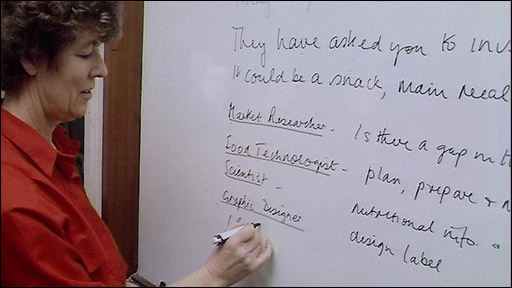 They have asked you to inv
It could be a snack, main meal
Market Researcher - Is there a gap in th
Food Technologist - plan, prepare +
Scientist - nutritional info.
Graphic Designer design label